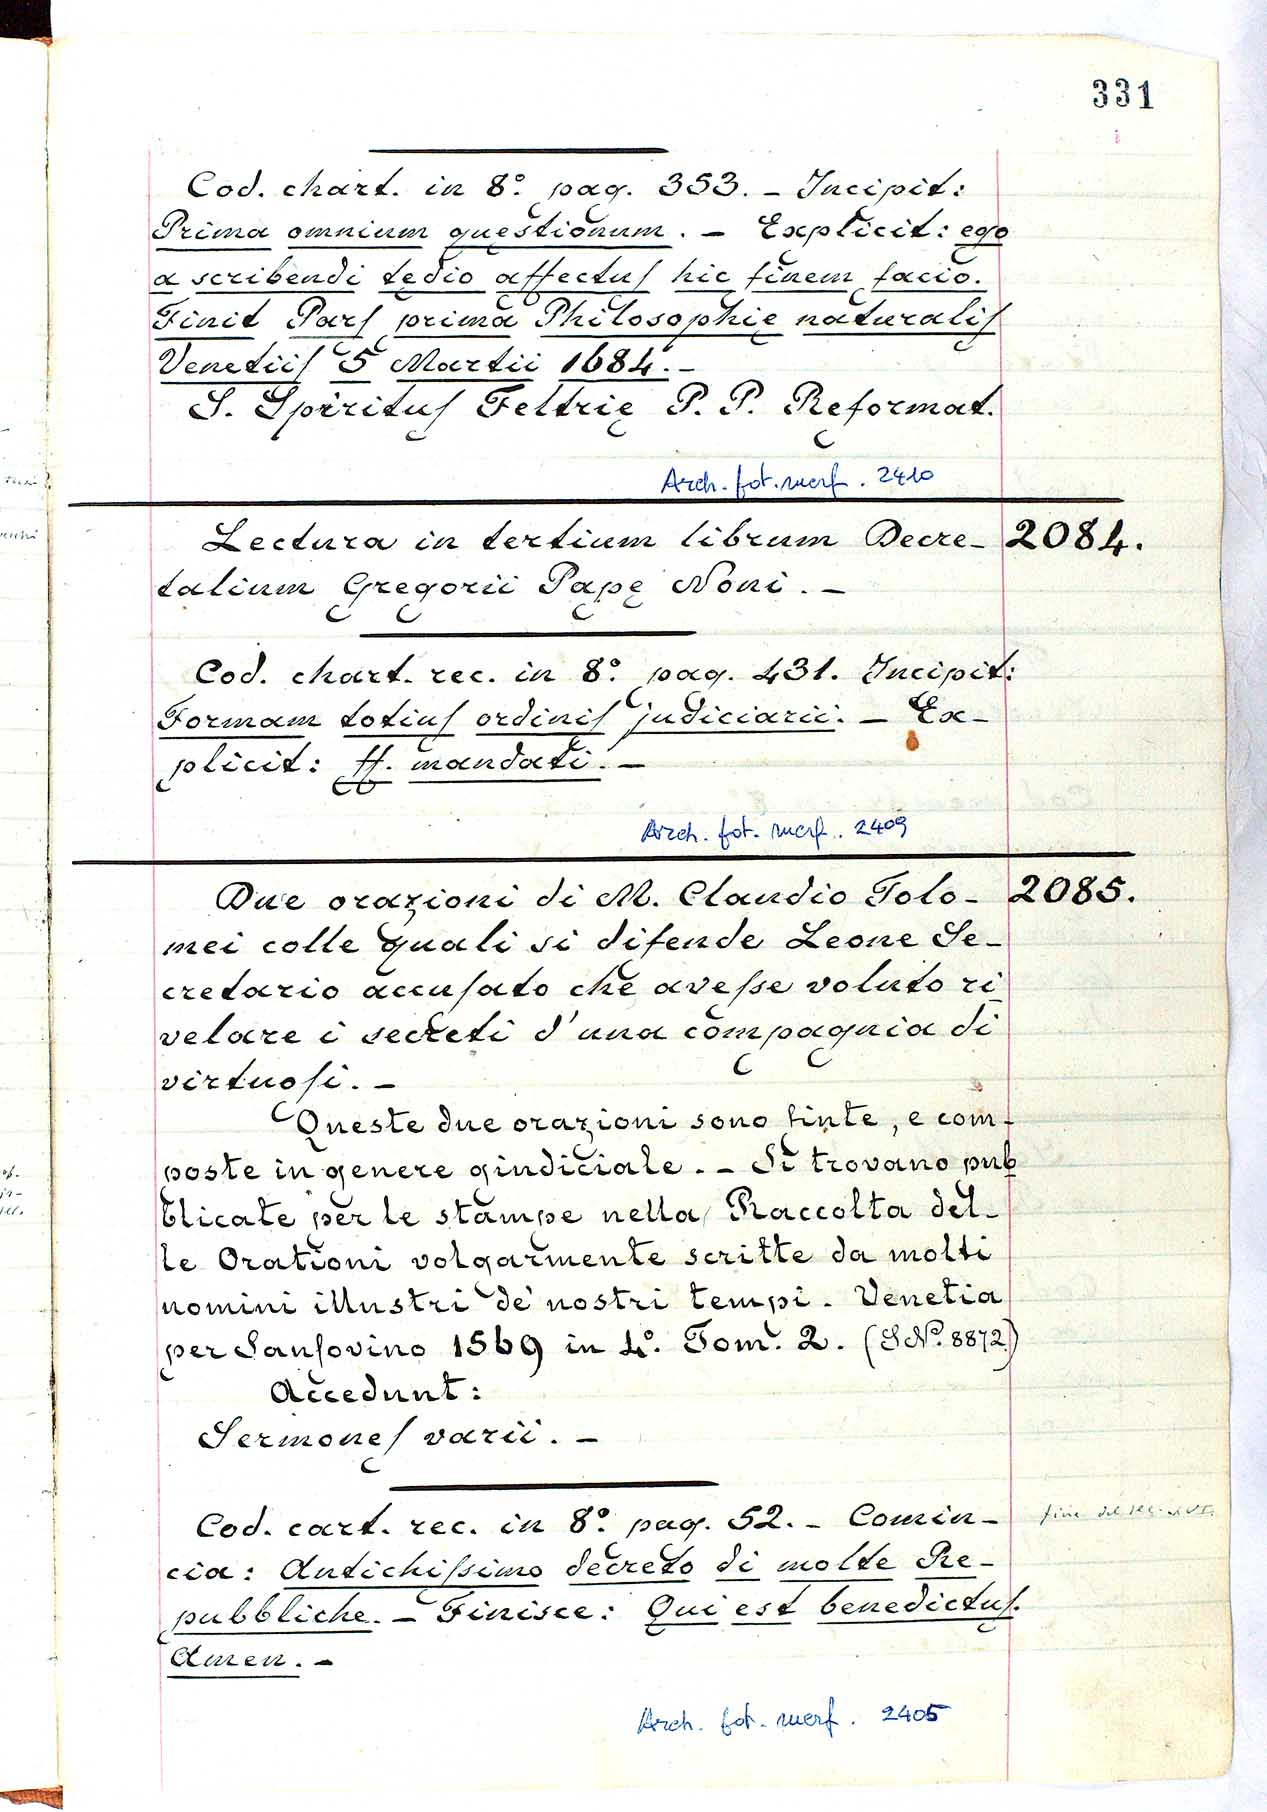 331
Cod. chart. in 8.° pag. 353. – Incipit:
Prima omnium questionum. – Explicit: ego
a scribendi tedio affectus hic finem facio.
Finit Pars prima Philosophię naturalis
Venetiis 5 Martii 1684. –
S. Spiritus Feltrię P. P. Reformat.
Arch. fot. marf. 2410
Lectura in tertium librum Decre- 2084.
talium Gregorii Papę Noni. –
Cod. chart. rec. in 8.° pag. 431. Incipit:
Formam totius ordinis judiciarii. – Ex-
plicit: ff. mandati. –
Arch. fot. marf. 2409
Due orazioni di M. Claudio Tolo- 2085.
mei colle quali si difende Leone Se-
cretario accusato che avesse voluto ri
velare i secreti d'una compagnia di
virtuosi. –
Queste due orazioni sono finte, e com-
poste in genere giudiciale. – Si trovano pub
blicate per le stampe nella Raccolta del-
le Orationi volgarmente scritte da molti
uomini illustri de' nostri tempi. Venetia
per Sansovino 1569 in 4.° Tom.° 2. (S N.° 8872)
Accedunt:
Sermones varii. –
Cod. cart. rec. in 8.° pag. 52. – Comin-
fine del sec. XVI.
cia: Antichissimo decreto di molte Re-
pubbliche. – Finisce: Qui est benedictus.
Amen. –
Arch. fot. marf. 2405